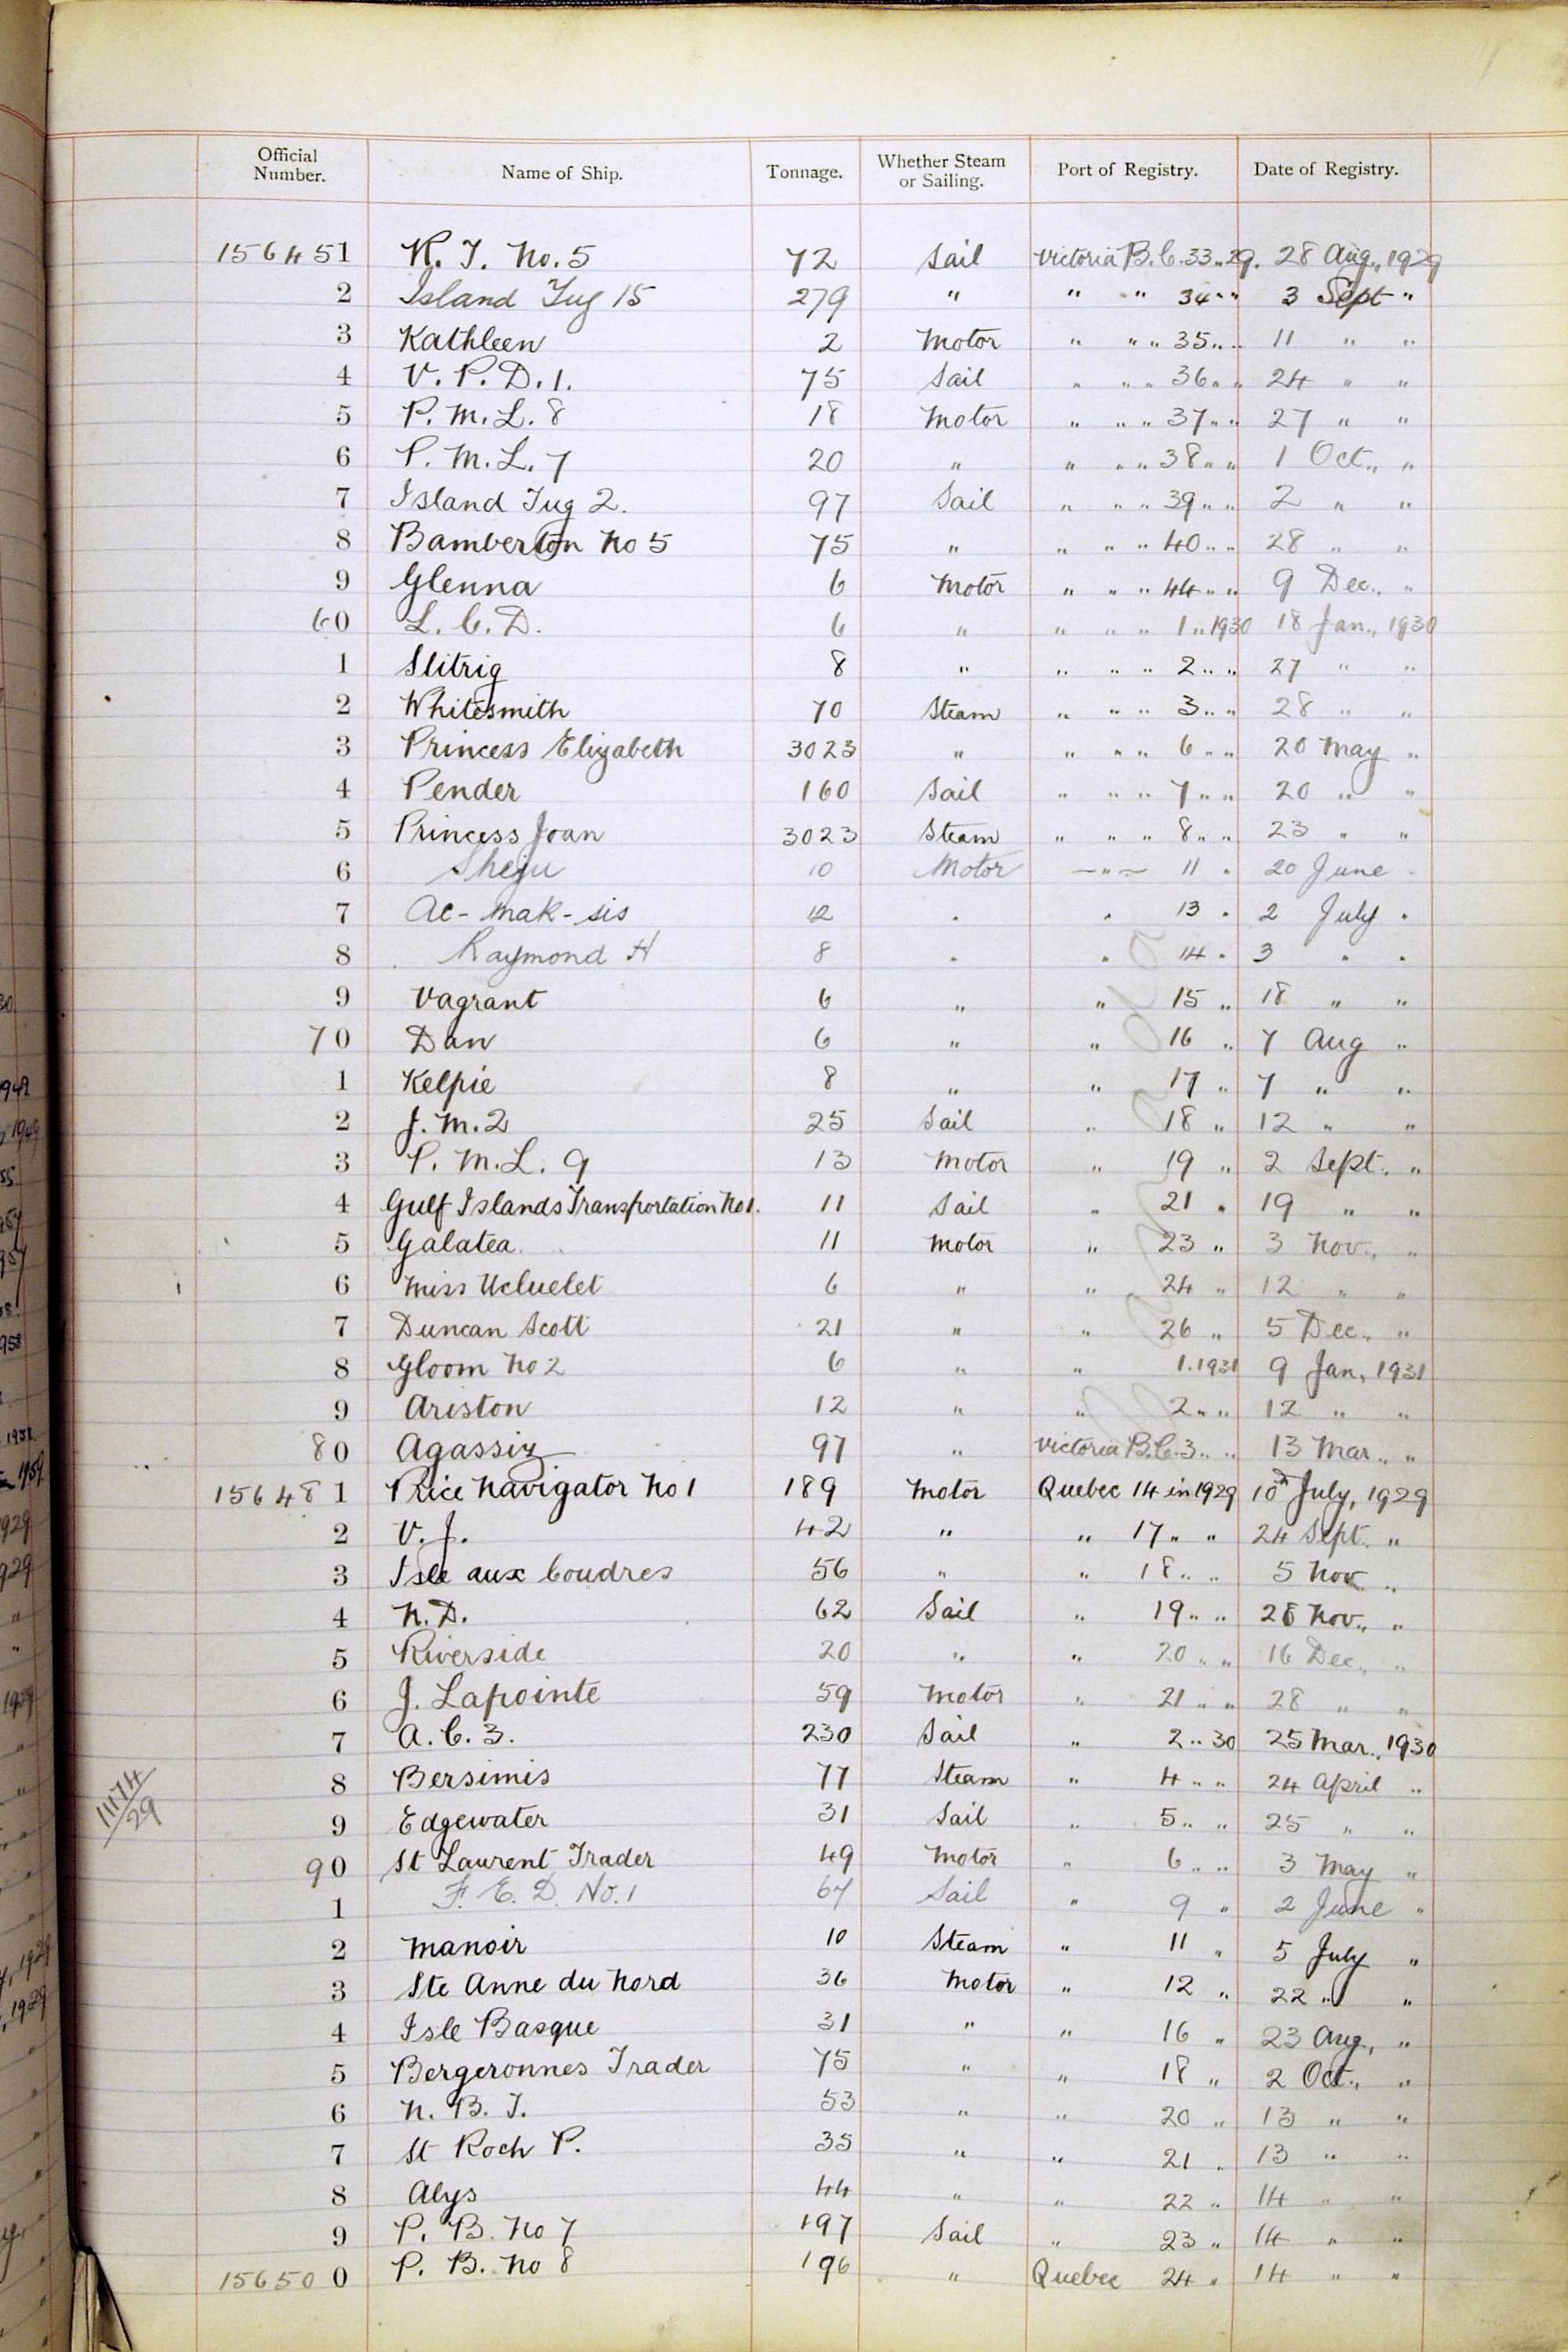 Official Number. Name of Ship. Tonnage. Whether Steam or Sailing. Port of Registry. Date of Registry.
156451 K. T. No. 5 72 Sail Victoria B.C. 33 " 29. 28 Aug., 1929
2 Island Tug 15 279 " " " 34 " " 3 Sept "
3 Kathleen 2 Motor " " " 35 " " 11 " "
4 V. P. D. 1. 75 Sail " " " 36 " " 24 " "
5 P. M. L. 8 18 Motor " " " 37 " " 27 " "
6 P. M. L. 7 20 " " " " 38 " " 1 Oct., "
7 Island Tug 2. 97 Sail " " " 39 " " 2 " "
8 Bamberton No 5 75 " " " " 40 " " 28 " "
9 Glenna 6 Motor " " " 44 " " 9 Dec., "
60 L. C. D. 6 " " " " 1 " 1930 18 Jan., 1930
1 Slitrig 8 " " " " 2 " " 27 " "
2 Whitesmith 70 Steam " " " 3 " " 28 " "
3 Princess Elizabeth 3023 " " " " 6 " " 20 May "
4 Pender 160 Sail " " " 7 " " 20 " "
5 Princess Joan 3023 Steam " " " 8 " " 23 " "
6 10 Motor — " — 11 " 20 June "
7 Ac-mak-sis 12 " " 13 " 2 July "
8 Raymond H 8 " " 14 " 3 " "
9 Vagrant 6 " " 15 " 18 " "
70 Dan 6 " " 16 " 7 Aug "
1 Kelpie 8 " " 17 " 7 " "
2 J. M. 2 25 Sail " 18 " 12 " "
3 P. M. L. 9 13 Motor " 19 " 2 Sept., "
4 Gulf Islands Transportation No 1. 11 Sail " 21 " 19 " "
5 Galatea. 11 Motor " 23 " 3 Nov., "
6 Miss Ucluelet 6 " " 24 " 12 " "
7 Duncan Scott 21 " " 26 " 5 Dec., "
8 Gloom No 2 6 " " 1. 1931 9 Jan, 1931
9 Ariston 12 " " 2 " " 12 " "
80 Agassiz 97 " Victoria B.C. 3 " " 13 Mar., "
156481 Price Navigator No 1 189 Motor Quebec 14 in 1929 10th July, 1929
2 V. J. 42 " " 17 " " 24 Sept., "
3 Isle aux Coudres 56 " " 18 " " 5 Nov "
4 N. D. 62 Sail " 19 " " 28 Nov., "
5 Riverside 20 " " 20 " " 16 Dec., "
6 J. Lapointe 59 Motor " 21 " " 28 " "
7 A. C. 3. 230 Sail " 2 " 30 25 Mar., 1930
8 Bersimis 77 Steam " 4 " " 24 April "
11174/29
9 Edgewater 31 Sail " 5 " " 25 " "
90 St Laurent Trader 49 Motor " 6 " " 3 May "
1 F. E. D. No. 1 67 Sail " 9 " 2 June "
2 Manoir 10 Steam " 11 " 5 July "
3 Ste Anne du Nord 36 Motor " 12 " 22 " "
4 Isle Basque 31 " " 16 " 23 Aug., "
5 Bergeronnes Trader 75 " " 18 " 2 Oct., "
6 N. B. T. 53 " " 20 " 13 " "
7 St Roch P. 35 " " 21 " 13 " "
8 Alys 44 " " 22 " 14 " "
9 P. B. No 7 197 Sail " 23 " 14 " "
156500 P. B. No 8 196 " Quebec 24 " 14 " "